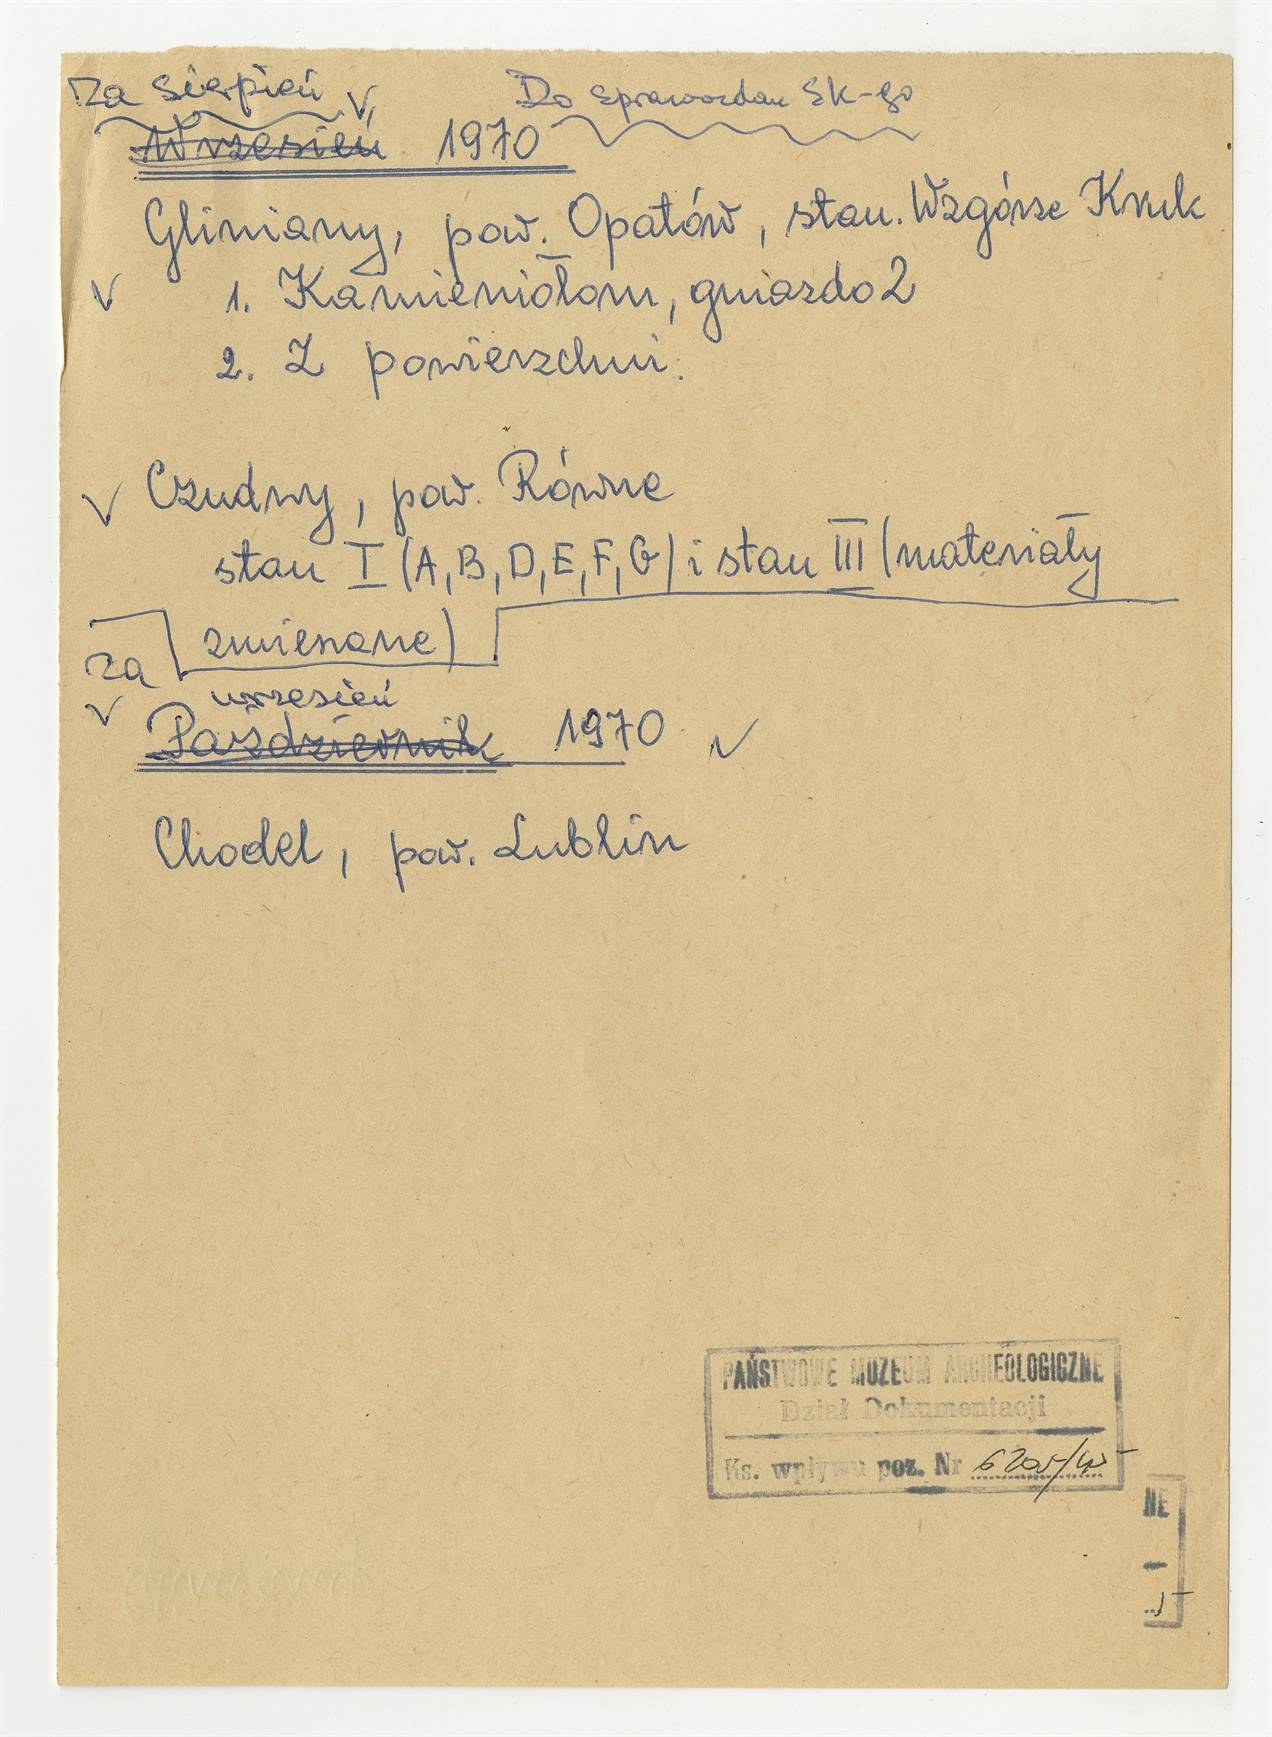 Za sierpień √ Do sprawozdań Sk-go
Wrzesień 1970
Gliniany, pow. Opatów, stan. Wzgórze Kruk
√ 1. Kamieniołom, gniazdo 2
2. Z powierzchni.
√ Czudny, pow. Równe
stan I (A, B, D, E, F, G) i stan III (materiały
zmieszane)
Za
√ wrzesień
Październik 1970 √
Chodel, pow. Lublin
PAŃSTWOWE MUZEUM ARCHEOLOGICZNE
Dział Dokumentacji
Ks. wpływu poz. Nr
NE